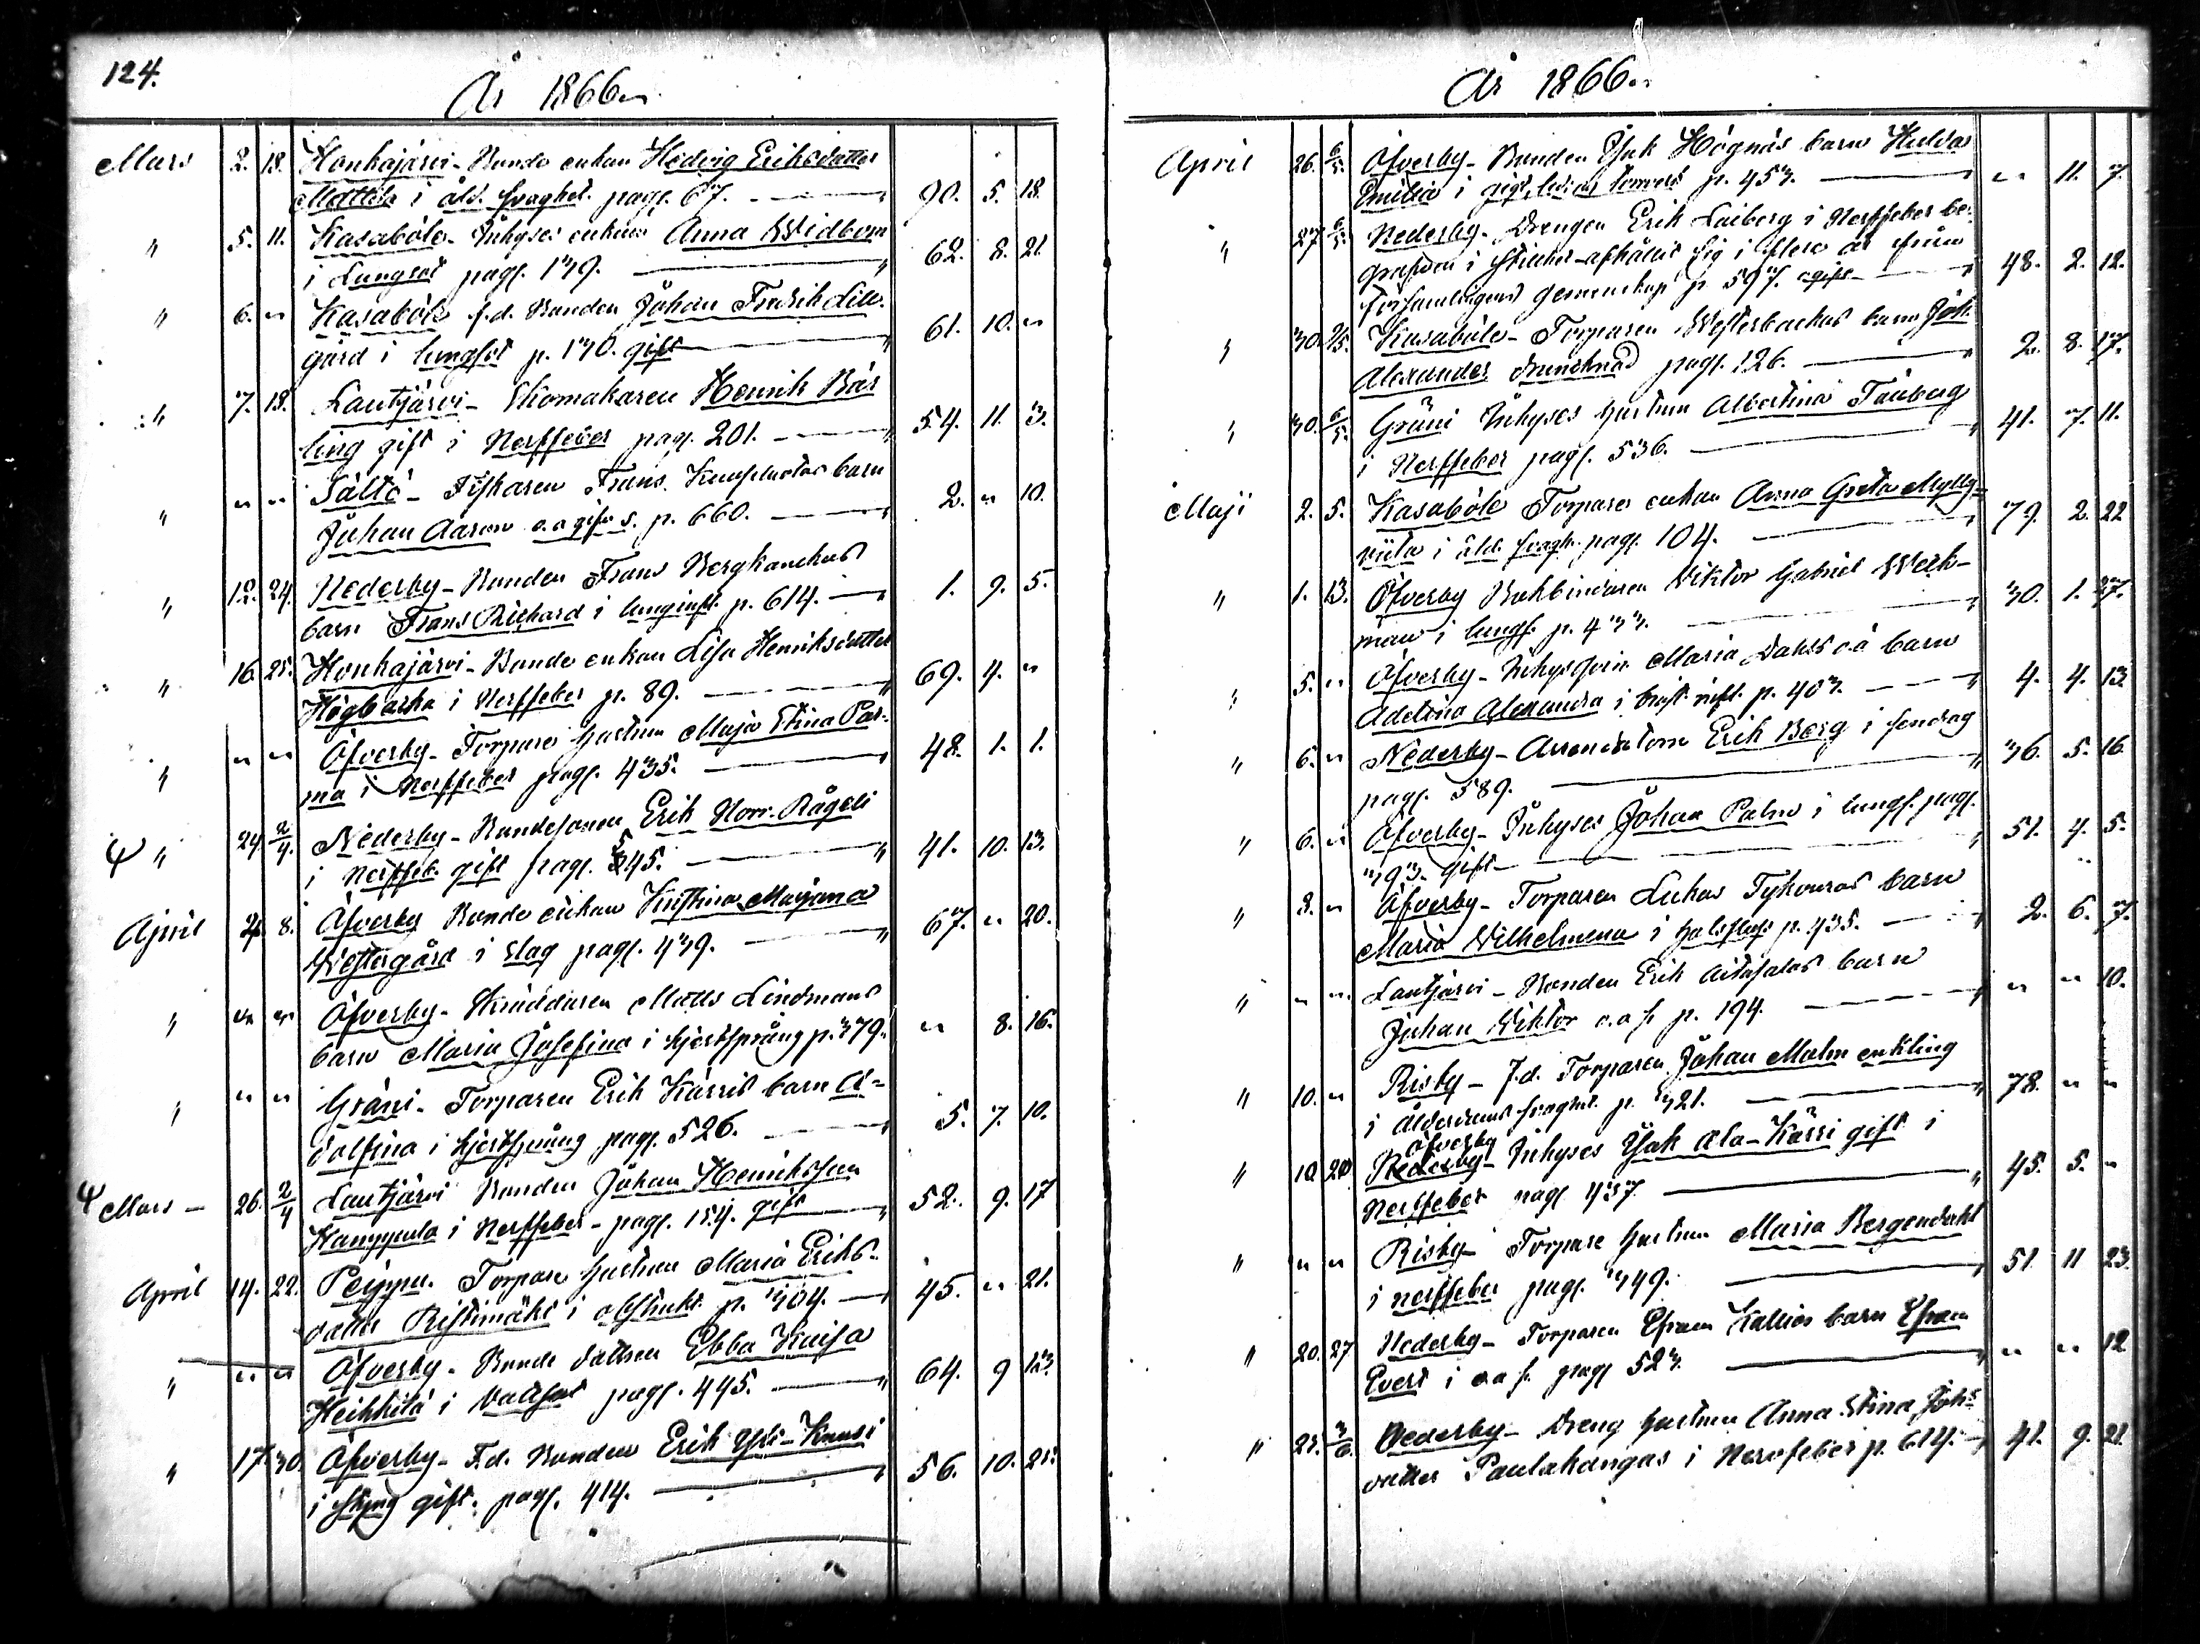 124.
År 1866.
Mars 2. 18. Honkajärvi - Bonde enkan Hedvig Eriksdotter
Mattila i åld. svaghet. pag. 67. 90. 5. 18.
" 5. 11. Kasaböle - Inhyses enkan Anna Widbom
i Lungsot pag. 179. 62. 8. 21.
" 6. " Kasaböle f.d. Bonden Johan Fredrik Lill-
gård i lungsot p. 170. gift 61. 10. "
" 7. 18. Lautjärvi - Skomakaren Henrik Bär
ling gift i Nerffeber pag. 201. 54. 11. 3.
" " " Sältö - Fiskaren Frans barn
Johan Aaron p. 660. 2. " 10.
" 12. 24. Nederby - Bonden Frans Bergkankas
barn Frans Richard i lunginfl. p. 614. 1. 9. 5.
" 16. 25. Honkajärvi - Bonde enkan Lisa Henriksdotter
Högbacka i Nerffeber p. 89. 69. 4. "
" " " Öfverby - Torpare hustrun Maja Stina Par-
ma i Nerffeber pag. 435. 48. 1. 1.
" 24. 2/4. Nederby - Bondesonen Erik Norr-Rågeli
i Nerffeb. gift pag. 545. 41. 10. 13.
April 2. 8. Öfverby Bonde enkan Kristina Marjana
Westergård i slag pag. 479. 67. " 20.
" " " Öfverby - Skräddaren Matts Lindmans
barn Maria Josefina i hjertsprång p. 379. " 8. 16.
" " " Gräni - Torparen Erik Kärris barn A-
dolfina i hjertsprång pag. 526. 5. 7. 10.
Mars - 26. 2/4 Lautjärvi Bonden Johan Henriksson
Hamppula i Nerffeber - pag. 154. gift 52. 9. 17
April 14. 22. Peippu. Torpare hustrun Maria Eriks-
dotter Ristimäki i obstrukt. p. 704. 45. " 21.
" " " Öfverby - Bonde dottren Ebba Kaisa
Heikkilä i Vattsot pag. 445. 64. 9 13.
" 17. 30. Öfverby - F.d. Bonden Erik Yli-Knusi
i styng gift. pag. 414. 56. 10. 25.
År 1866.
April 26. 6/5. Öfverby - Bonden Isak Högnäs barn Hulda
Emilia i p. 453. " 11. 7.
" 27 6/5. Nederby - Drengen Erik Laiberg i Nerffeber be-
grafven i afhållit sig i flere år från
församlingens gemenskap p. 597. ogift 48. 2. 12.
" 30. Kasaböle - Torparen Westerbackas barn Joh.
Alexander drunknad pag. 126. 2. 8. 17.
" 30. 6/5. Gräni Inhyses hustrun Albertina Tauberg
i Nerffeber pag. 536. 41. 7. 11.
Maji 2. 5. Kasaböle Torpare enkan Anna Greta Mylly-
viita i åld. svagh. pag. 104. 79. 2. 22
" 1. 13. Öfverby Bokbindaren Viktor Gabriel Weck-
man i lungs. p. 30. 1. 27.
" 5. " Öfverby - Maria Dahls o.ä barn
Adelina Alexandra i p. 403. 4. 4. 13.
" 6. " Nederby - Arrendatorn Erik Berg i
pag. 589. 36. 5. 16
" 6. " Öfverby - Inhyses Johan Palm i lungs. pag.
393. gift 51. 4. 5.
" 8. " Öfverby - Torparen Lukas barn
Maria Wilhelmina i p. 435. 2. 6. 7.
" " " Lautjärvi - Bonden Erik Aitasalos barn
Johan Wiktor p. 194. " " 10.
" 10. " Risby - F.d. Torparen Johan Malm enkling
i Ålderdoms svaghet. p. 321. 78. " "
" 10. 20. Öfverby Nederby - Inhyses Isak Ala-Kärri gift i
Nerffeber pag 437. 45. 5. "
" " " Risby - Torpare hustrun Maria Bergendahl
i nerffeber pag. 349. 51. 11 23.
" 20. 27 Nederby - Torparen Efraim Kallios barn Efraim
Evert i pag 523. " " 12
" 23. 3/6. Nederby - Dreng hustrun Anna Stina Johs-
dotter Paulakangas i Nervfeber p. 614. 41. 9. 21.